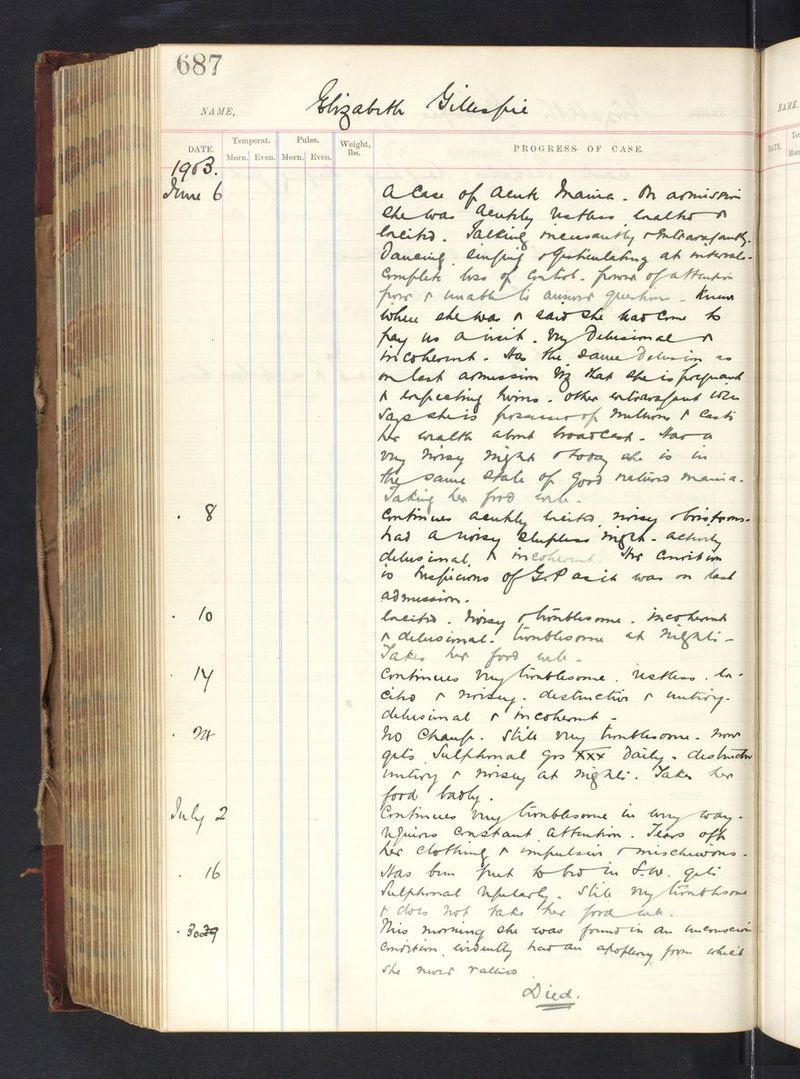 687
NAME,
Elizabeth Gillespie
DATE.
Temperat.
Pulse.
Weight, lbs.
PROGRESS OF CASE.
Morn. Even. Morn. Even.
1903.
June 6 A case of Acute Mania. On admission
she was acutely restless exalted &
excited. Talking incessantly & extravagantly.
Dancing, singing & gesticulating at intervals.
Complete loss of control. power of attention
poor & unable to answer questions. Knew
where she was & said she had come to
pay us a visit. Very Delusional &
incoherent. Has the same Delusion as
on last admission viz that she is pregnant
& expecting twins. other extravagant ideas
says she is possessed of millions & casts
her wealth about broadcast. Had a
very noisy night & today she is in
the same state of good natured mania.
Taking her food well.
. 8 Continues acutely excited, noisy & boisterous.
had a noisy sleepless night. actively
delusional & incoherent. Her condition
is suspicious of G.P as it was on last
admission.
. 10 Excited. Noisy & troublesome. Incoherent
& delusional. troublesome at nights.
Takes her food well.
. 14 Continues very troublesome. restless. ex-
cited & noisy. destructive & untidy.
delusional & incoherent.
. 24 No change. Still very troublesome. now
gets Sulphonal grs XXX daily. destructive
untidy & noisy at nights. Takes her
food badly.
July 2 Continues very troublesome in every way.
requires constant attention. Tears off
her clothing & impulsive & mischievous.
. 16 Has been put to bed in S.W. gets
Sulphonal regularly. Still very troublesome
& does not take her food well.
. 30 This morning she was found in an unconscious
condition, evidently had an apoplexy from which
she never rallied
Died.
NAME.
DATE.